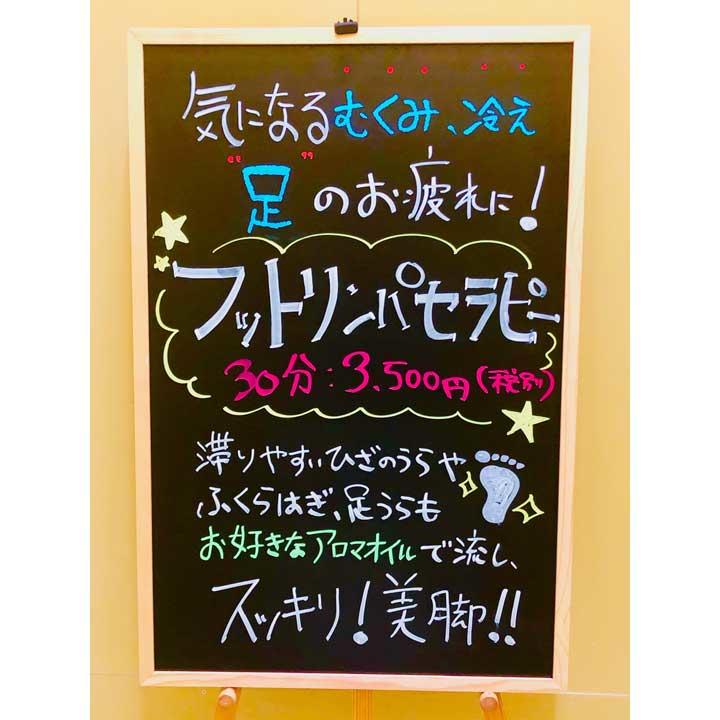 気になるむくみ、冷え
"足"のお疲れに!
フットリンパセラピー
30分:3,500円(税別)
滞りやすいひざのうらや
ふくらはぎ、足うらも
お好きなアロマオイルで流し、
スッキリ!美脚!!